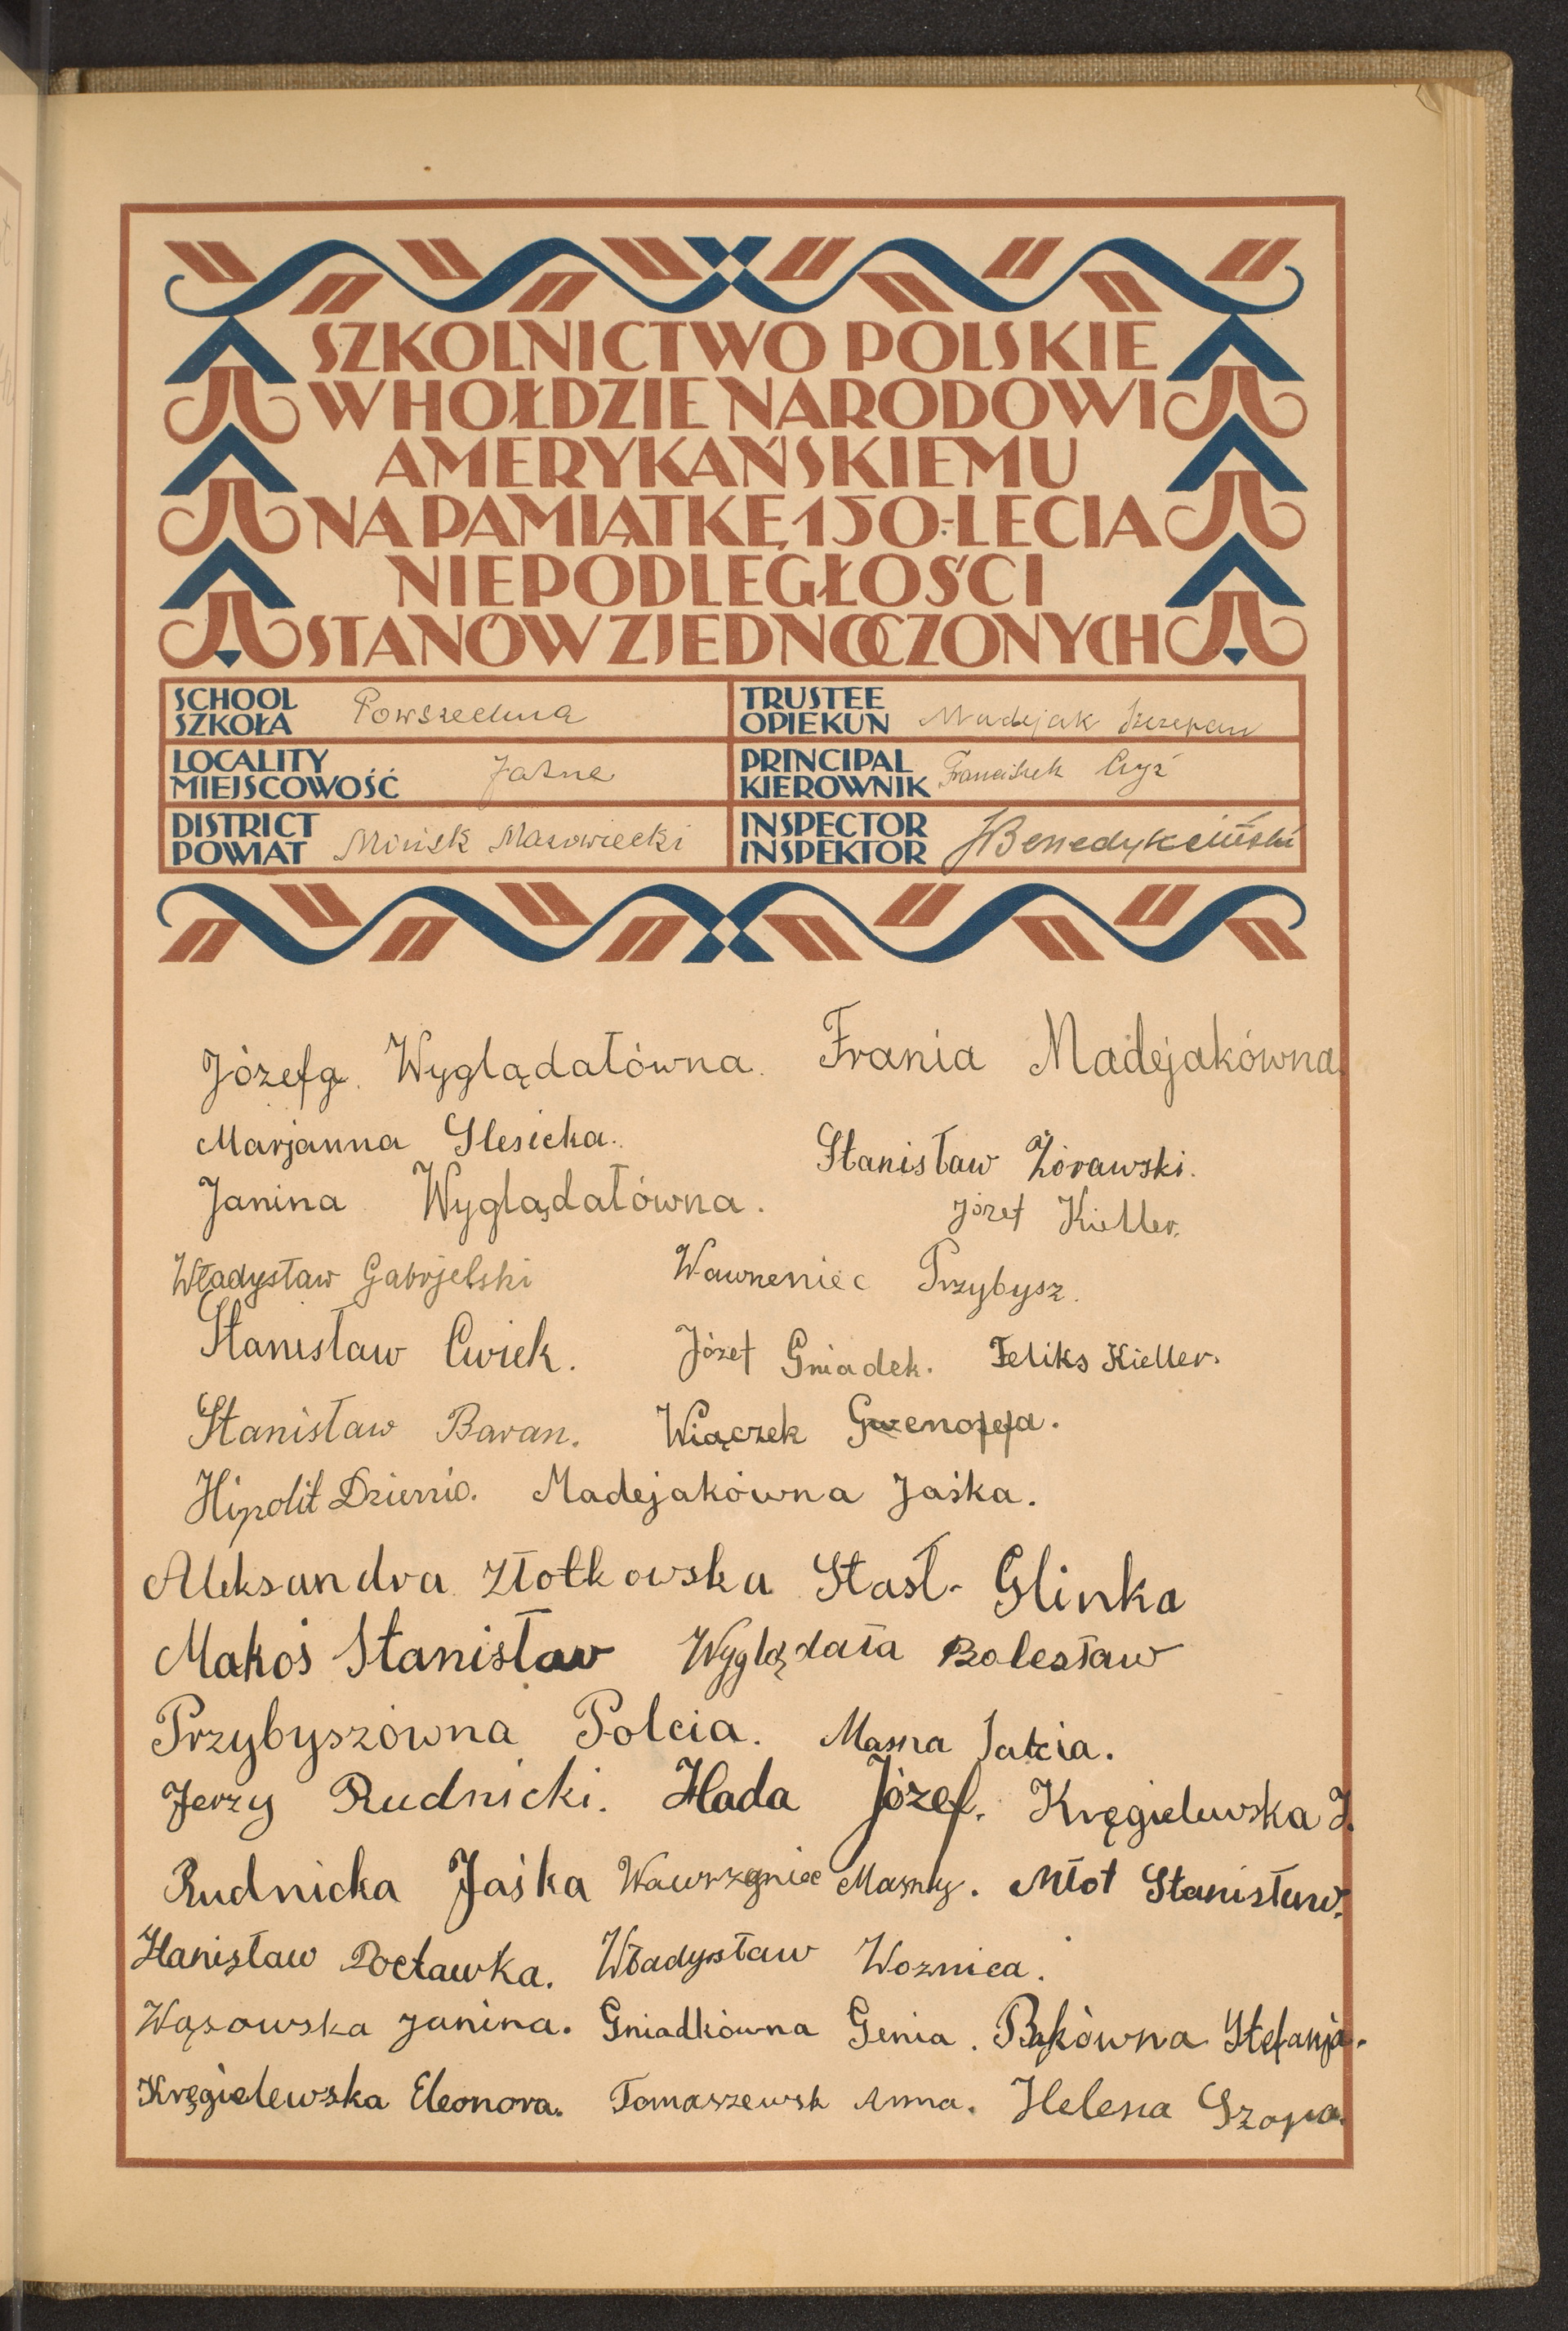 SZKOLNICTWO POLSKIE
W HOŁDZIE NARODOWI
AMERYKAŃSKIEMU
NA PAMIĄTKĘ 150-LECIA
NIEPODLEGŁOŚCI
STANÓW ZJEDNOCZONYCH
SCHOOL
SZKOŁA Powszechna
TRUSTEE
OPIEKUN Madejak Szczepan
LOCALITY
MIEJSCOWOŚĆ
PRINCIPAL
KIEROWNIK Franciszek
DISTRICT
POWIAT Mińsk Mazowiecki
INSPECTOR
INSPEKTOR JBenedykciński
Józefa Wyglądałówna. Frania Madejakówna.
Marjanna Slesicka.
Stanisław Żórawski.
Janina Wyglądałówna.
Józef Kieller.
Władysław Gabrjelski Wawrzeniec Przybysz.
Stanisław Cwiek. Józef Gniadek. Feliks Kieller.
Stanisław Baran. Wiączek Gwenofefa.
Hipolit Madejakówna Jaśka.
Aleksandra Złotkowska Stasł- Glinka
Makoś Stanisław Wyglądała Bolesław
Przybyszówna Polcia. Masna
Jerzy Rudnicki. Hada Józef. Kręgielewska J.
Rudnicka Jaśka Wawrzyniec Masny. Młot Stanisław.
Stanisław Poctawka. Władysław Woznica.
Wąsowska Janina. Gniadkówna Genia. Bąkówna Stefanja.
Kręgielewska Eleonora. Tomaszewsk Anna. Helena Szopa.